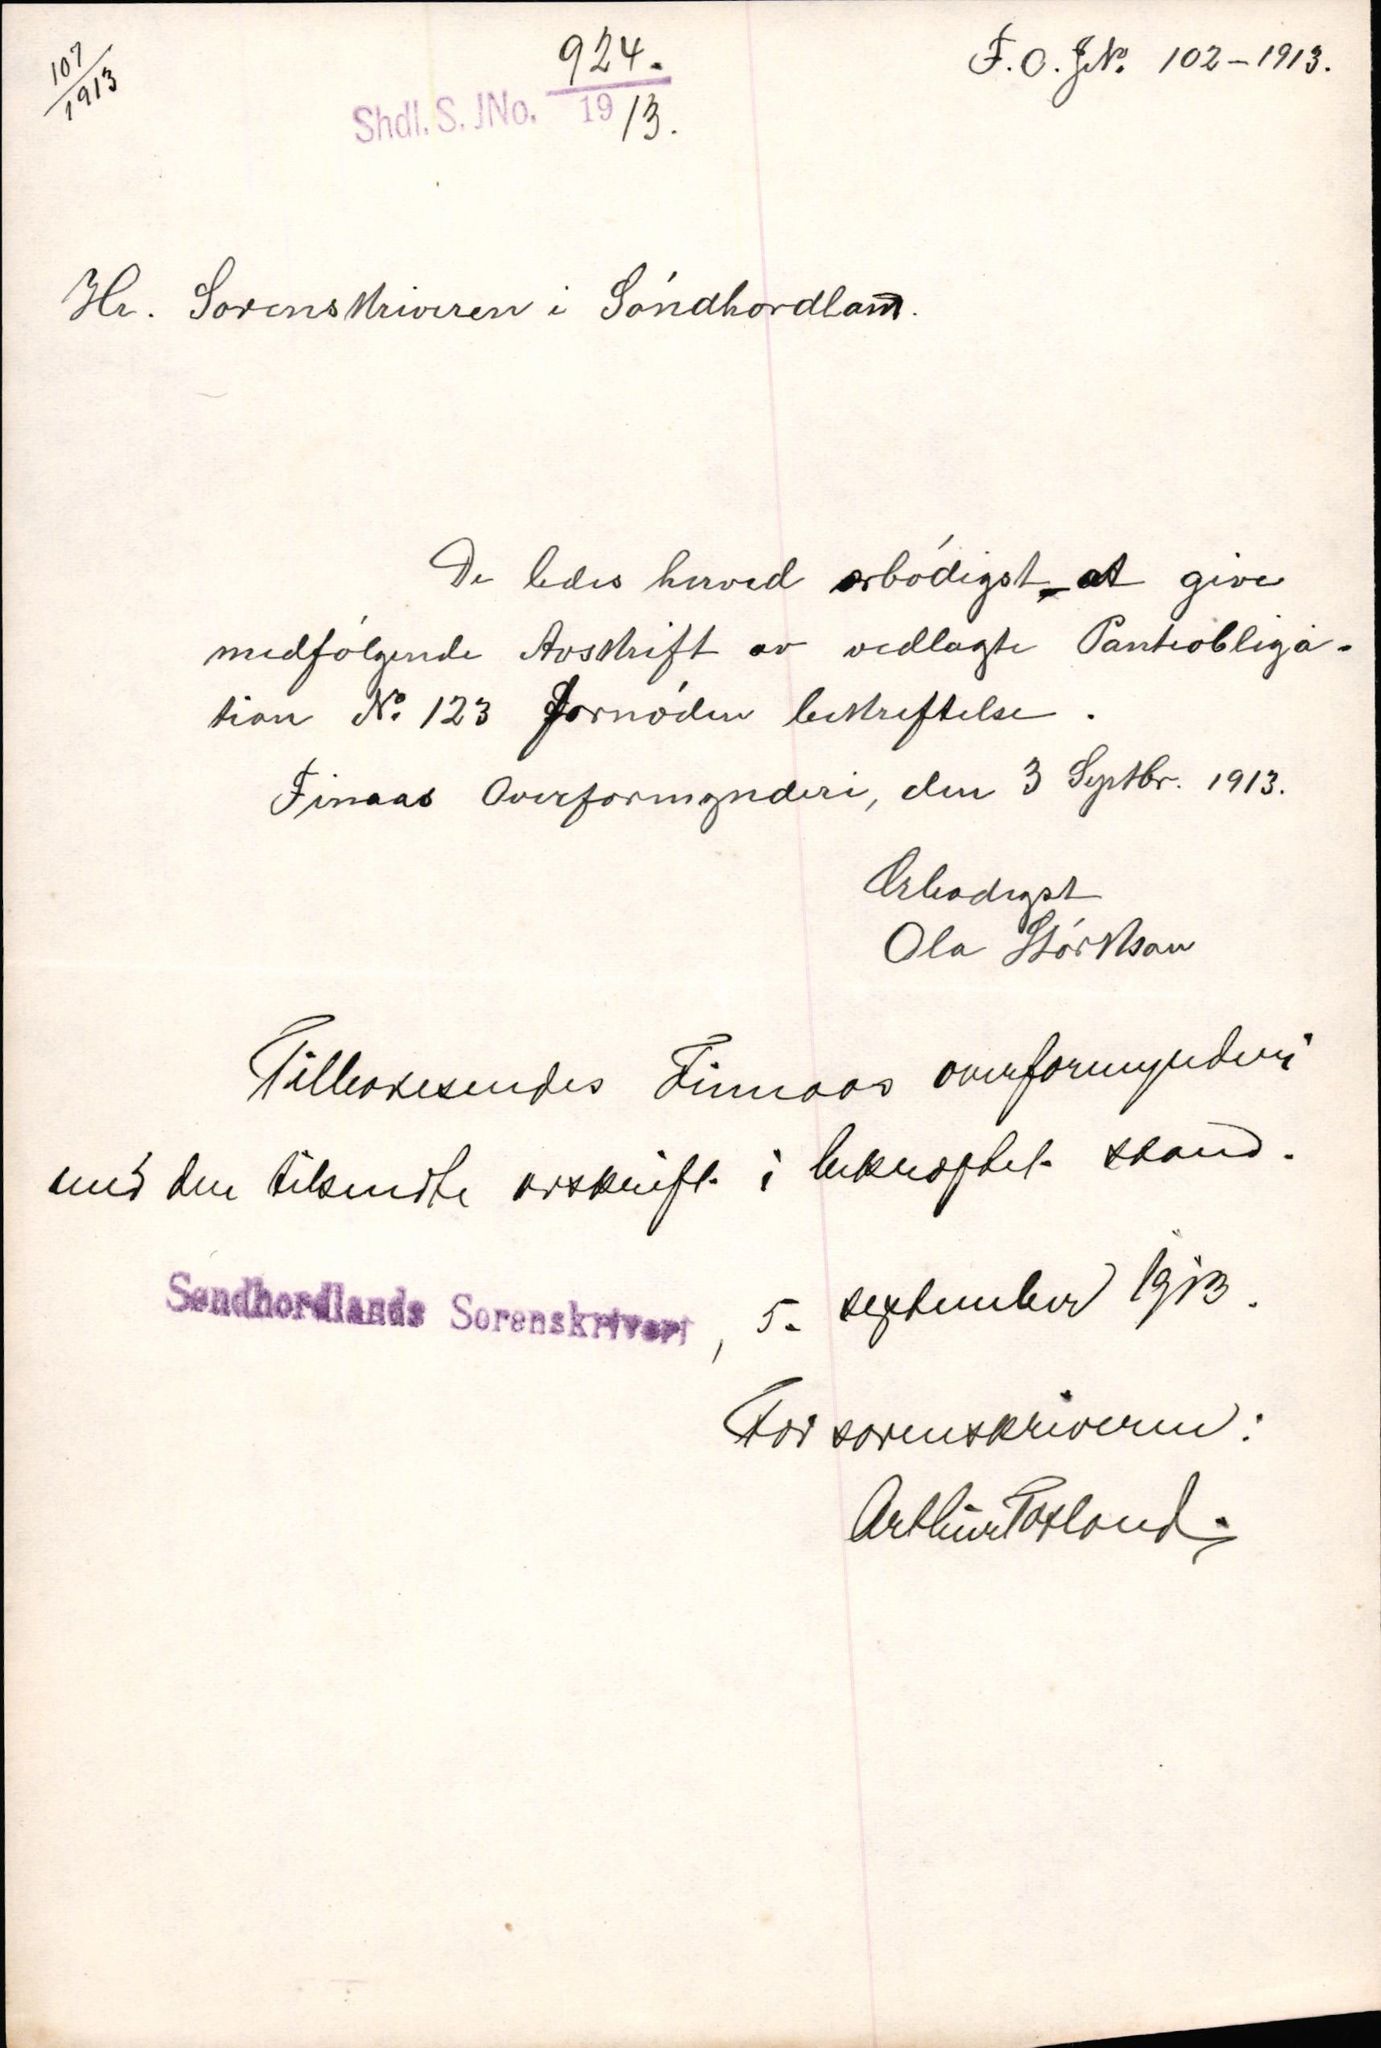 107
1913
924.
Shdl. S. JNo. 19 13.
F. O. JNo. 102-1913.
Hr. Sorenskriveren i Söndhordland.
De bedes herved ærbödigst at give
medfölgende Avskrift av vedlagte Panteobliga-
tion No. 123 fornöden bekreftelse.
Finaas Overformynderi, den 3 Septbr. 1913.
Ærbödigst
Ola Störkson
Tilbakesendes Finnaas overformynderi
med den tilsendte avskrift i bekræftet stand.
Søndhordlands Sorenskriveri, 5. september 1913.
For sorenskriveren:
Arthur